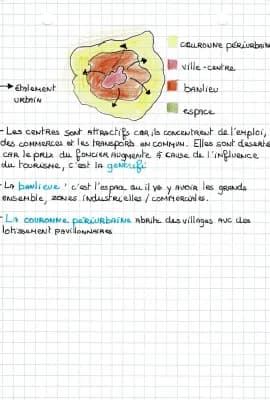 couronne périurbain
ville-centre
banlieu
espace
→ étalement
urbain
- Les centres sont attractifs car ils concentrent de l'emploi,
des commerces et les transports en commun. Elles sont deserté
car le prix du foncier augmente à cause de l'influence
du tourisme, c'est la gentrifi
- La banlieue : c'est l'espace où il va y avoir les grands
ensemble, zones industrielles / commerciales.
- La couronne périurbaine abrite des villages avc des
lotissement pavillonnaires